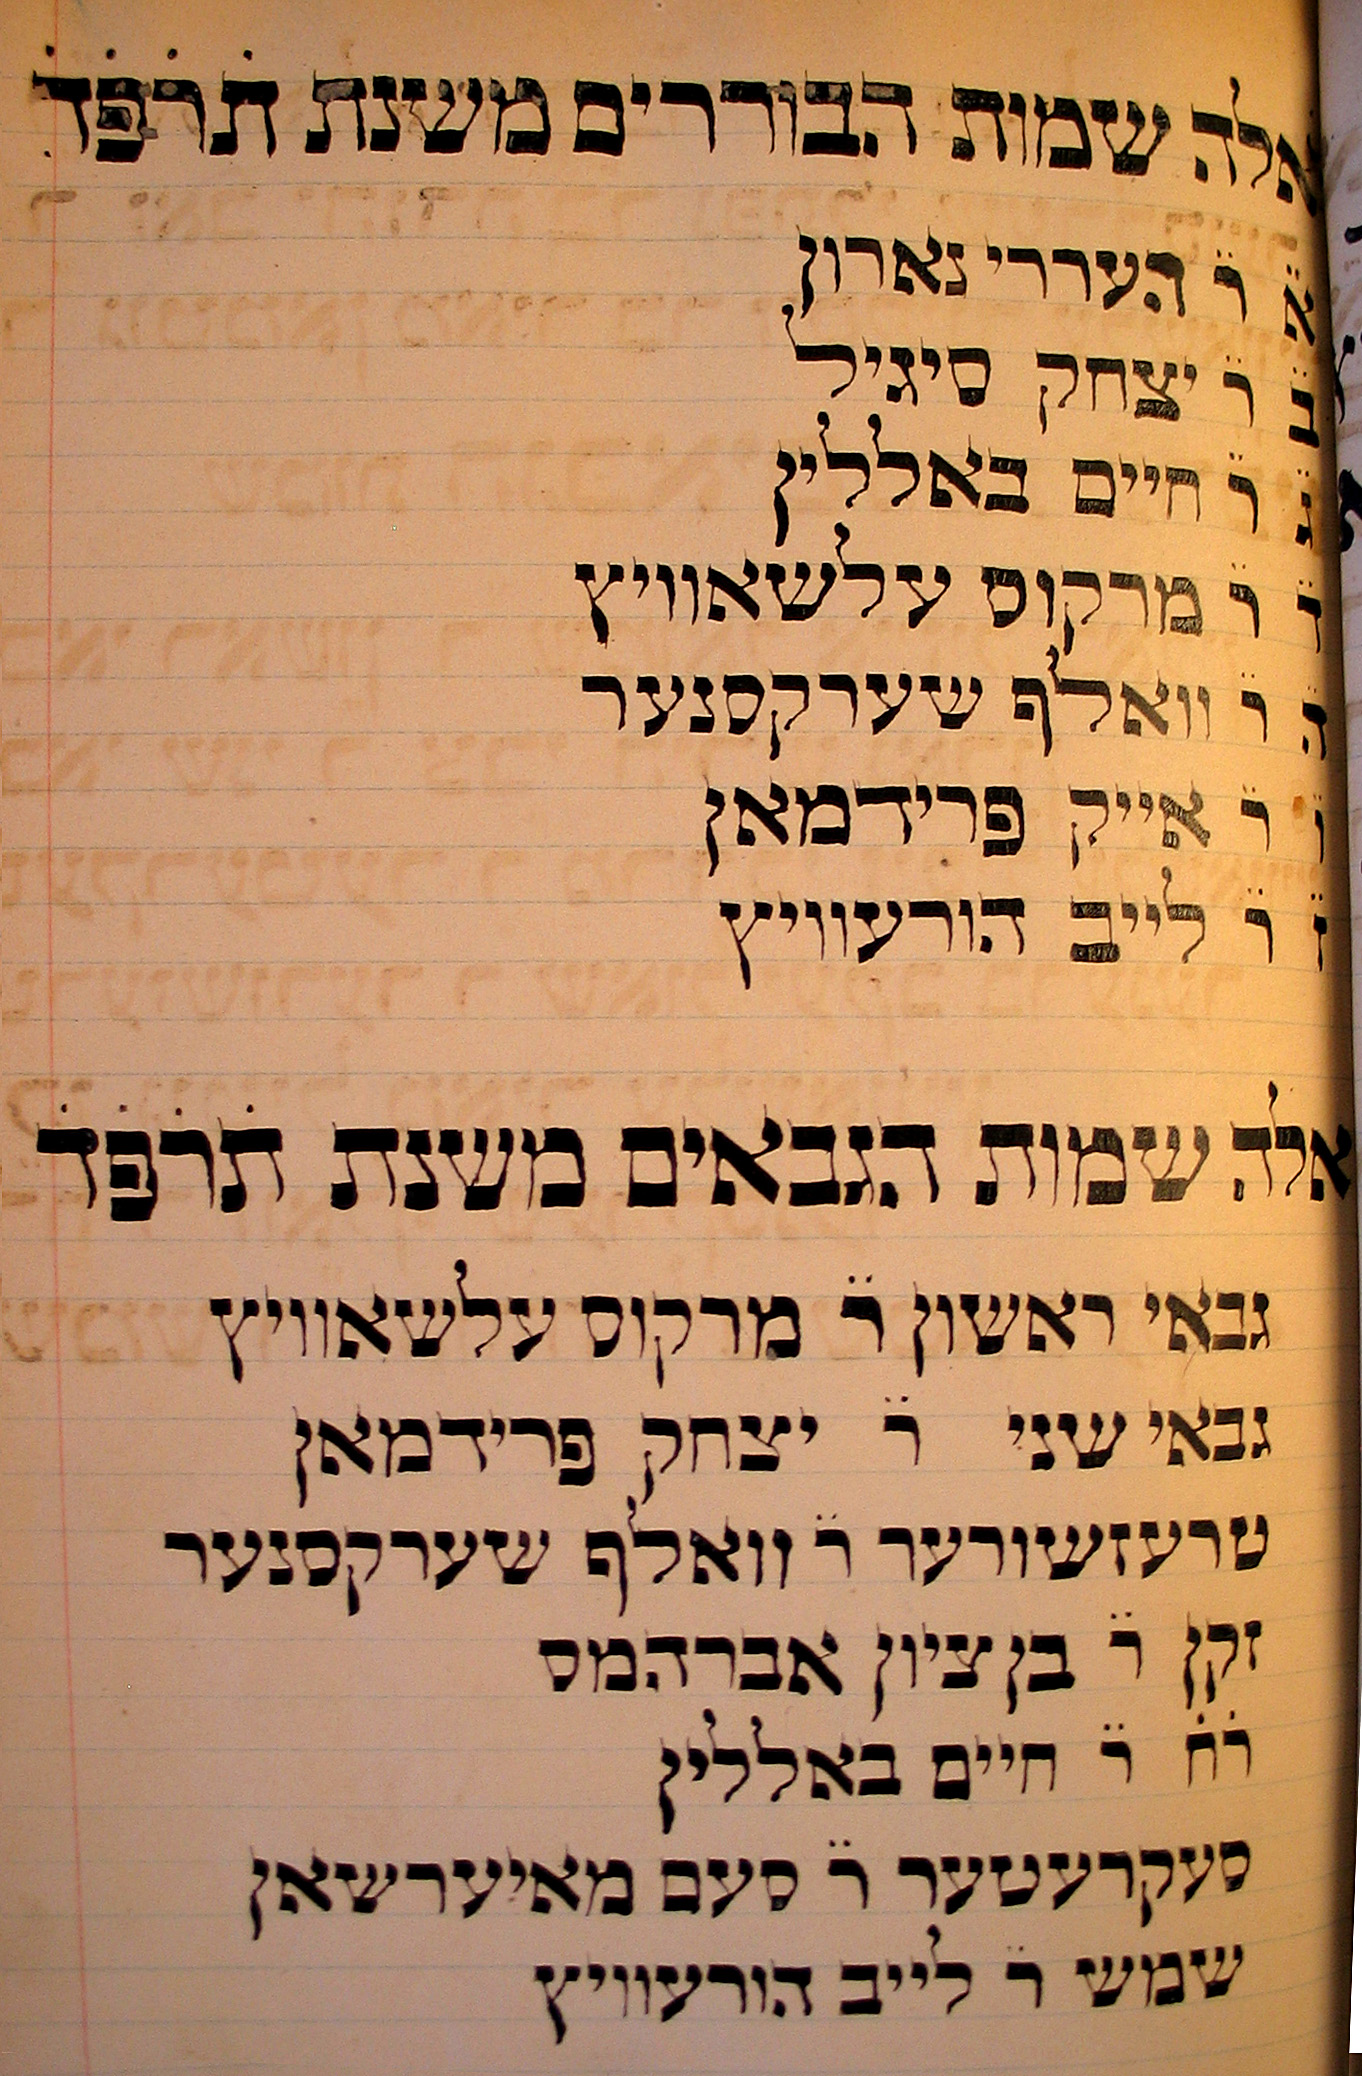 אלה שמות הבוררים משנת תׄרׄפׄדׄ
א̈ ר̈ העררי נארון
ב̈ ר̈ יצחק סיגיל
ג̈ ר̈ חיים באללין
ד̈ ר̈ מרקוס עלשאוויץ
ה̈ ר̈ וואלף שערקסנער
ו̈ ר̈ אייק פרידמאן
ז̈ ר̈ לייב הורעוויץ
אלה שמות הגבאים משנת תׄרׄפׄדׄ
גבאי ראשון ר̈ מרקוס עלשאוויץ
גבאי שני ר̈ יצחק פרידמאן
טרעזשורער ר̈ וואלף שערקסנער
זקן ר̈ בן ציון אברהמס
רׄחׄ ר̈ חיים באללין
סעקרעטער ר̈ סעם מאיערשאן
שמש ר̈ לייב הורעוויץ